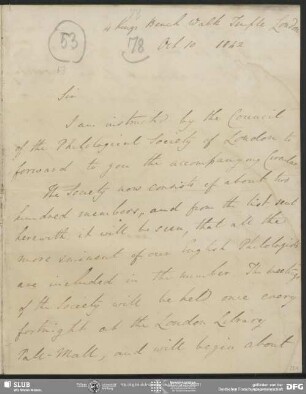 53
78
4 Kings Bench Walk Temple London
Oct 10 1842
Sir
I am instructed by the Council
of the Philological Society of London to
forward to you the accompanying Circular
The Society now consists of about two
hundred members, and from the list sent
herewith it will be seen, that all the
more eminent of our English Philologists
are included in the number The meetings
of the Society will be held once every
fortnight at the London Library
Pall-Mall, and will begin about
SLUB
DFG